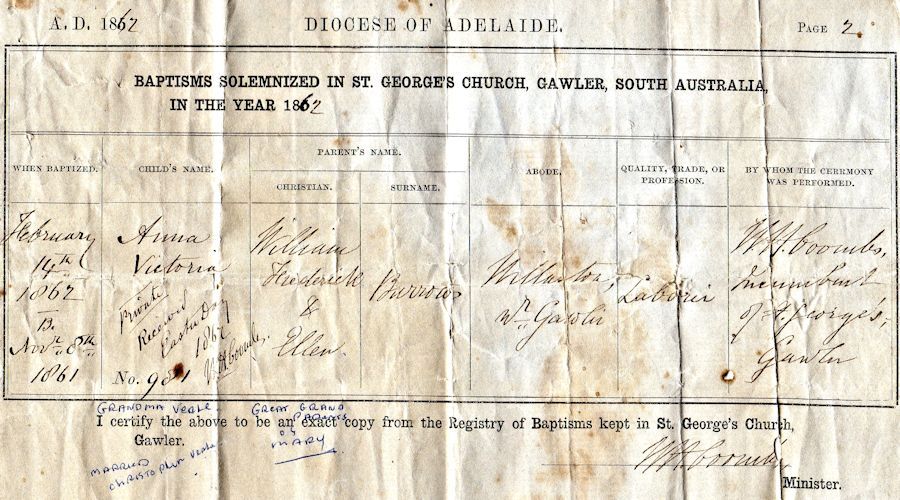 A. D. 1862
DIOCESE OF ADELAIDE.
PAGE 2.
BAPTISMS SOLEMNIZED IN ST. GEORGE'S CHURCH, GAWLER, SOUTH AUSTRALIA,
IN THE YEAR 1862
WHEN BAPTIZED.
CHILD'S NAME.
PARENT'S NAME.
CHRISTIAN.
SURNAME.
ABODE.
QUALITY, TRADE, OR
PROFESSION.
BY WHOM THE CEREMONY
WAS PERFORMED.
February
14th
1862
B.
Novr. 8th
1861
Anna
Victoria
Private
Received
Easter Day
1862
W. H. Coombs,
No. 981
William
Frederick
&
Ellen.
Burrows
Willaston,
nr. Gawler
Laborer
W. H. Coombs,
Incumbent
of St. George's,
Gawler
GRANDMA VERLE
MARRIED
CHRISTOPHER
GREAT GRAND
PARENTS
of
MARY
I certify the above to be an exact copy from the Registry of Baptisms kept in St. George's Church,
Gawler.
W. H. Coombs
Minister.